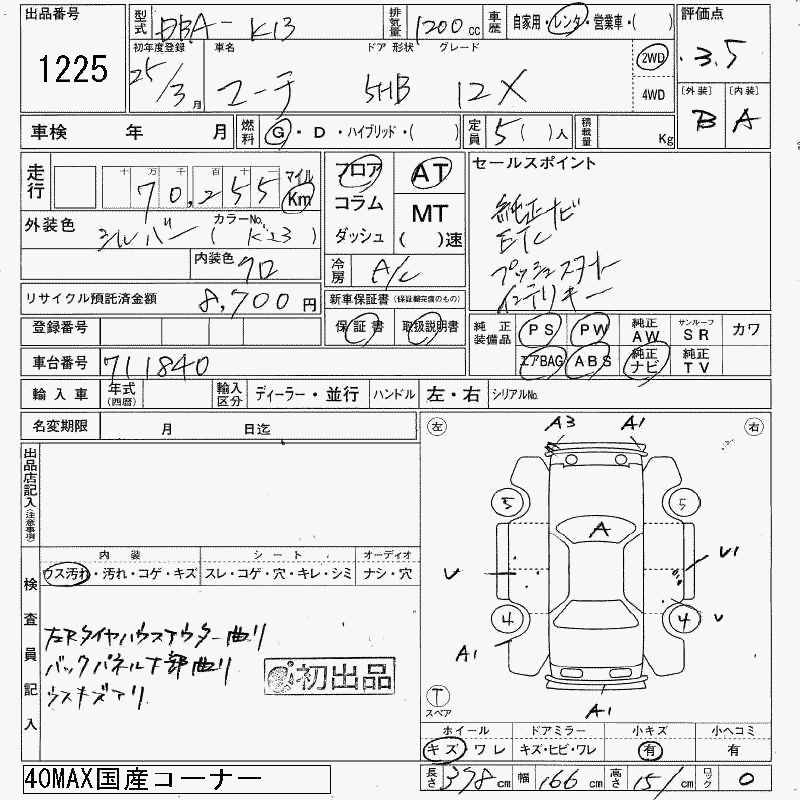 出品番号 型式 DBA-K13 排気量 1200cc 車歴 自家用・レンタ・営業車・( ) 評価点
1225 3.5
初年度登録 車名 ドア 形状 グレード
25/3月 マーチ 5HB 12X 2WD 4WD
[外装] [内装]
B A
車検 年 月 燃料 G・D・ハイブリッド・( ) 定員 5( )人 積載量 Kg
走行 十 万 千 百 十 一
70,255 マイル Km
フロア コラム ダッシュ
AT MT ( )速
セールスポイント
純正ナビ
ETC
プッシュスタート
インテリキー
外装色 シルバー カラーNo. (K23)
内装色 クロ
冷房 A/C
リサイクル預託済金額 8,700円
新車保証書 (保証期完備のもの)
保証書 取扱説明書
登録番号
車台番号 711840
純正装備品 PS PW 純正AW サンルーフSR カワ
エアBAG ABS 純正ナビ 純正TV
輸入車 年式(西暦) 輸入区分 ディーラー・並行 ハンドル 左・右 シリアルNo.
名変期限 月 日迄
左 A3 A1 右
出品店記入(注意事項)
5 5
A
V U1
4 4 V
A1
A1
T
スペア
検査員記入
内装 シート オーディオ
ウス汚れ・汚れ・コゲ・キズ スレ・コゲ・穴・キレ・シミ ナシ・穴
左Rタイヤハウスアウター曲り
バックパネル下部曲り
ウスキズアリ
初出品
ホイール ドアミラー 小キズ 小ヘコミ
キズ・ワレ キズ・ヒビ・ワレ 有 有
40MAX国産コーナー
長さ 378cm 幅 166cm 高さ 151cm ロック 0